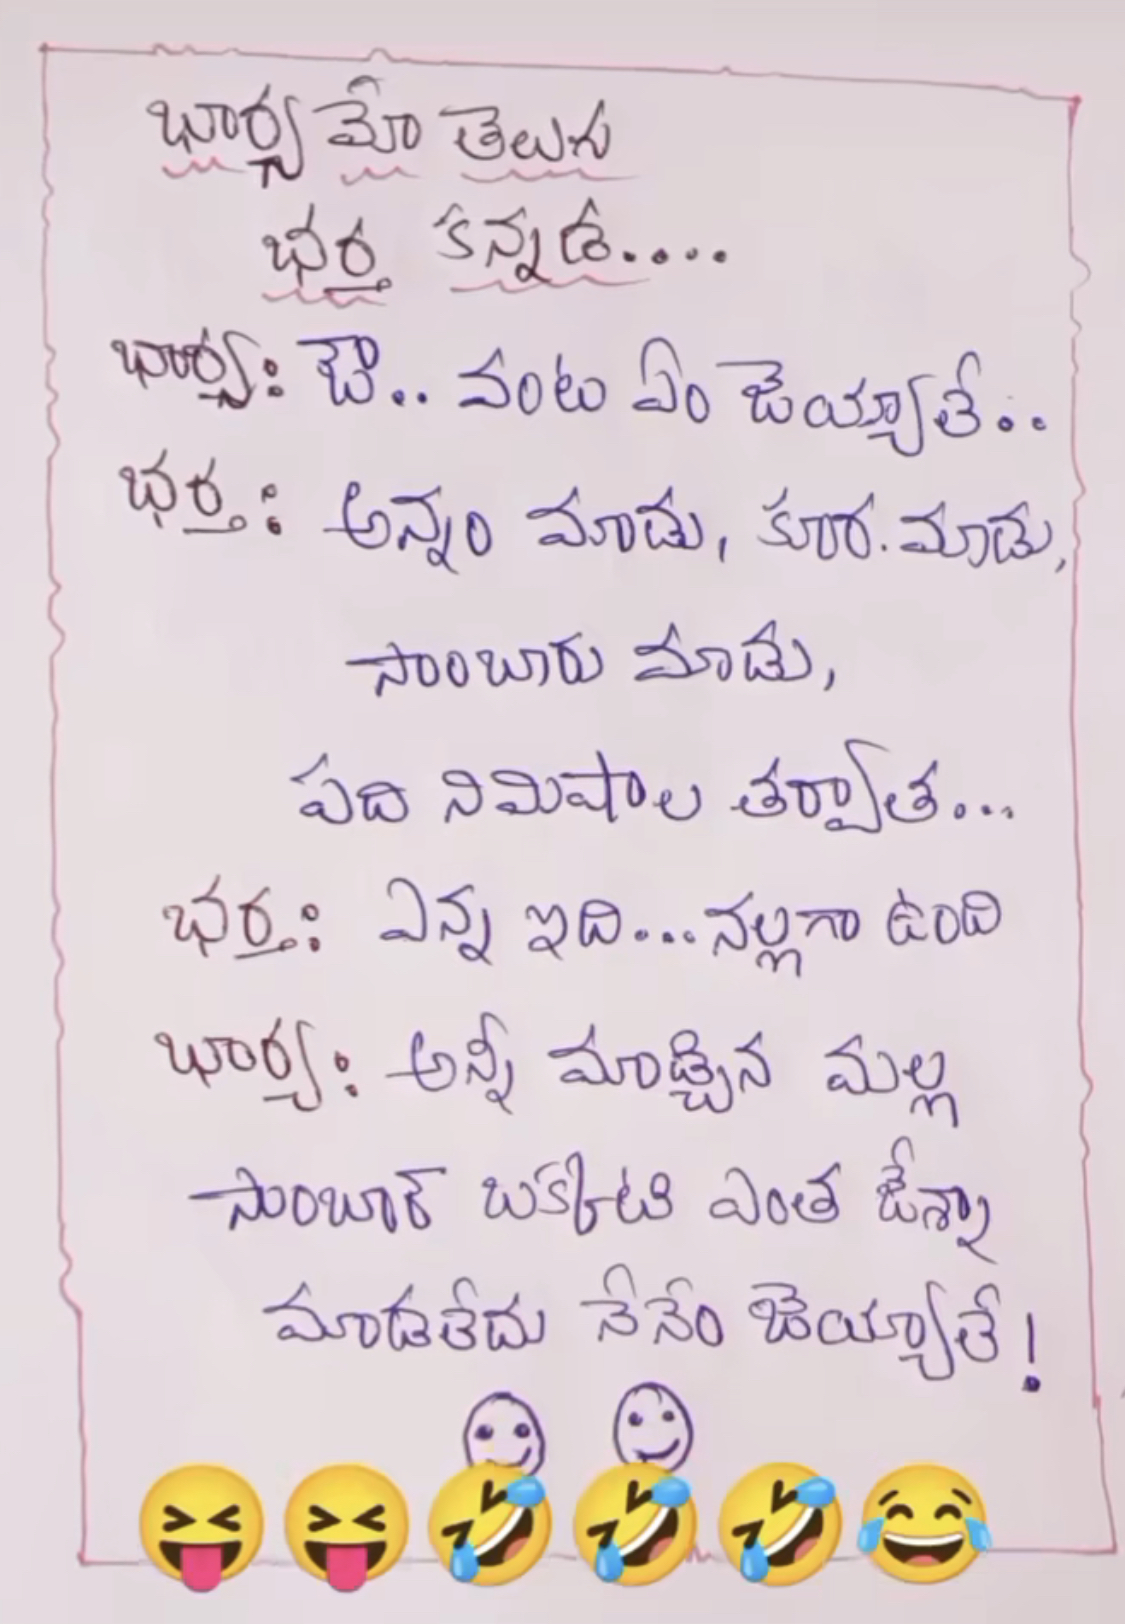 భార్య మో తెలుగు
భర్త కన్నడ....
భార్య: ఔ.. వంట ఏం జెయ్యాలే..
భర్త: అన్నం మాడు, కూర. మాడు,
సాంబారు మాడు,
పది నిమిషాల తర్వాత...
భర్త: ఎన్న ఇది... నల్లగా ఉంది
భార్య: అన్నీ మాడ్చిన మల్ల
సాంబార్ ఒక్కటి ఎంత జేశ్నా
మాడతలేదు నేనేం జెయ్యాలే!